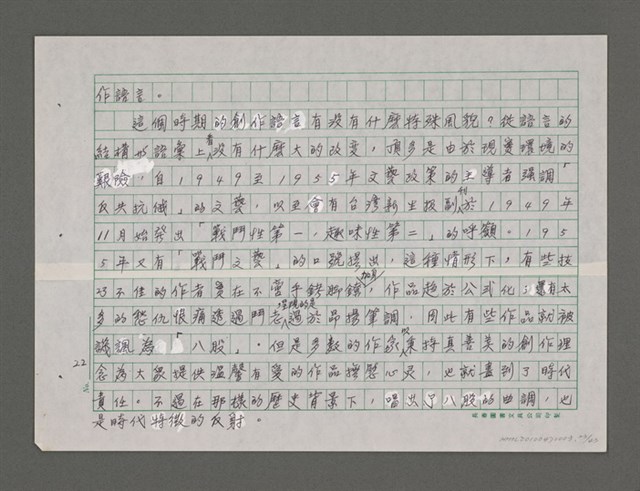 作語言。
這個時期的創作語言有沒有什麼特殊風貌？從語言的
結構和語彙上看沒有什麼大的改變，頂多是由於現實環境的
艱險，自1949至1955年文藝政策的主導者強調「
反共抗俄」的文藝，以至會有台灣新生報副刊於1949年
11月始發出「戰鬥性第一，趣味性第二」的呼籲。195
5年又有「戰鬥文藝」的口號提出，這種情形下，有些技
巧不佳的作者實在不啻手銬腳鐐加身，作品趨於公式化，還有太
多的愁仇恨痛透過鬥志呈現的是過於昂揚筆調，因此有些作品就被
譏諷為「八股」。但是多數的作家秉持真善美的創作理
念為大眾提供溫馨有愛的作品撫慰心靈，也就盡到了時代
責任。不過在那樣的歷史背景下，唱出了八股的曲調，也
是時代特徵的反射。
22